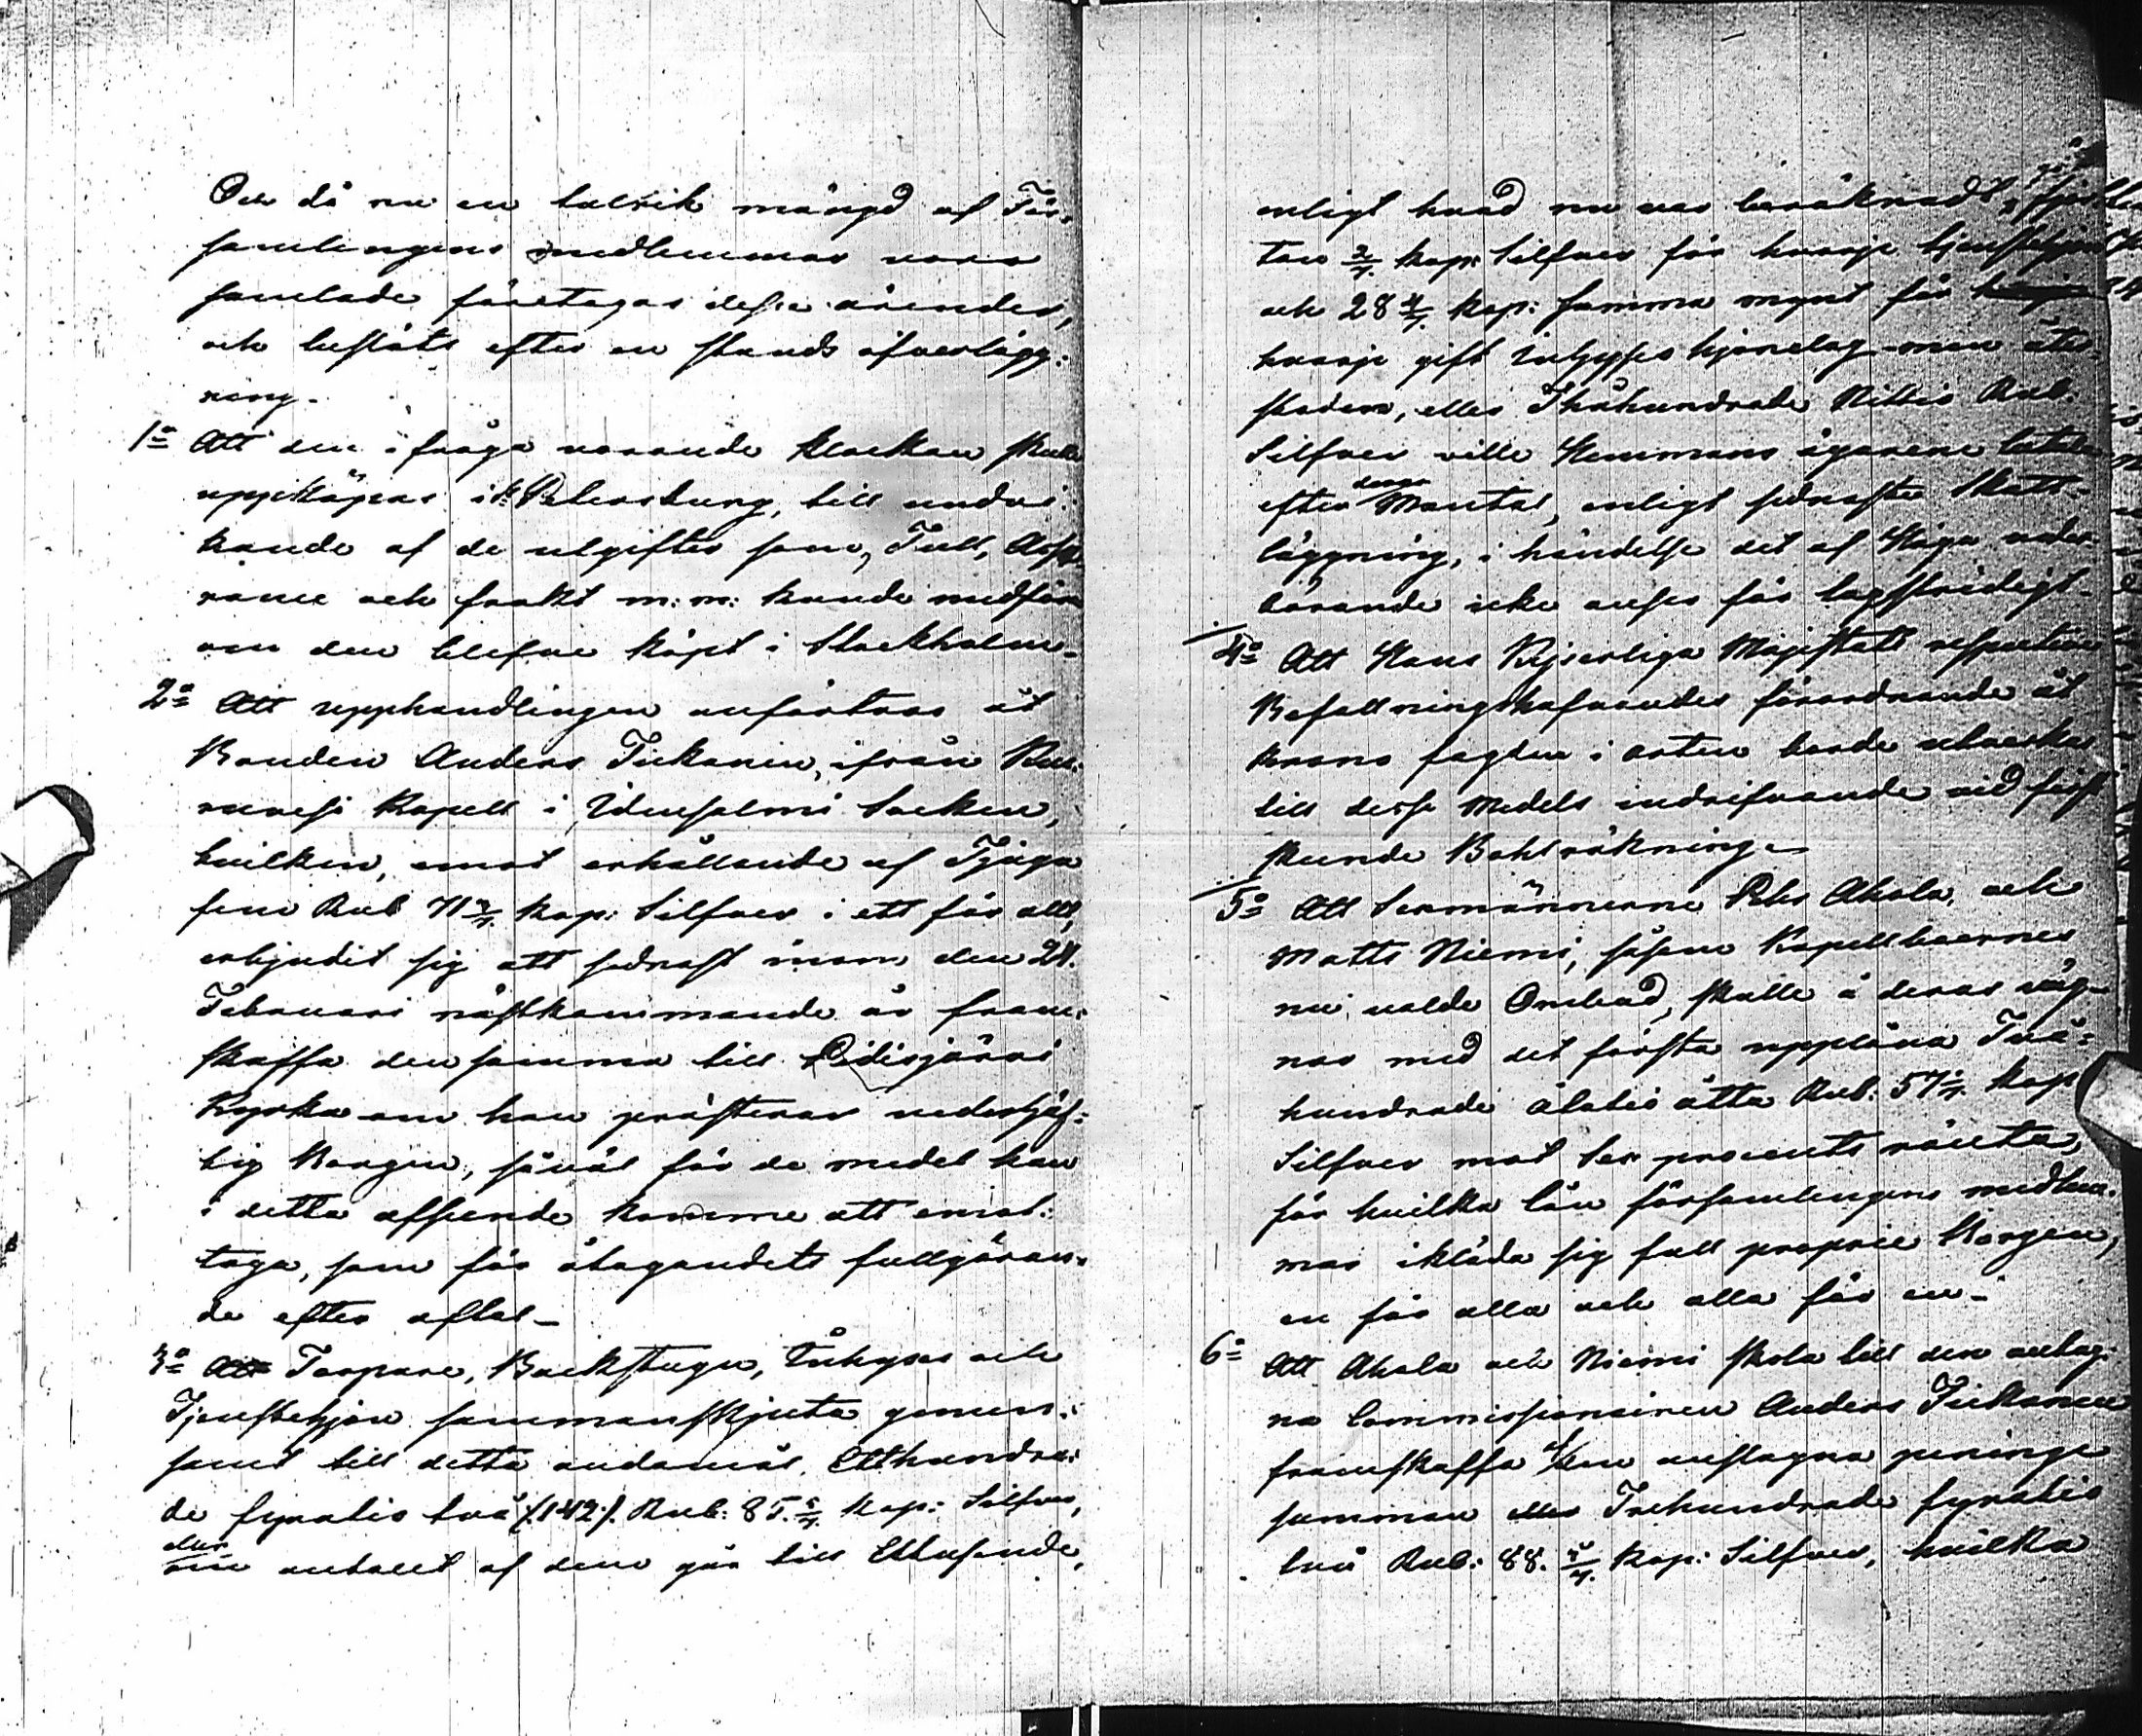 Och då nu en talrik mängd af För-
samlingens medlemmar voro
samlade företogos dessa ärender,
och beslöts efter en stunds öfverlägg:
ning.
1o Att den i fråga varande klockan skulle
uppköpas i St Petersburg, till undvi:
kande af de utgifter som, Tull, Assu
rance och frakt m: m: kunde medföra
om den blefve köpt i Stockholm.
2o Att upphandlingen anförtros åt
Bonden Anders Tiikanen, ifrån
Kapell i Idensalmi Socken,
hvilken, emot erhållande af Tjugu
fem Rub 71 3/7 Kop: Silfver i ett för allt,
erbjudit sig att sednast inom den 24.
Februari nästkommande år fram-
skaffa den samma till Pidisjärvi
Kyrka om han presterar vederhäf-
tig Borgen, såväl för de medel han
i detta afseende komme att emot:
taga, som för åtagandets fullgöran-
de efter aftal_
3o Att Torpare, Backstugu, Inhyses och
Tjenstehjon sammanskjuta gemen-
samt till detta ändamål Etthundra-
de fyratio två (:142:) Rub: 85. 5/7 Kop: Silfver,
der antalet af dem går till Ettusende,
enligt hvad nu var beräknadt, fjorton
ton 2/7 Kop: Silfver för hvarje tjenstehjon
och 28 4/7 Kop: samma mynt för
hvarje gift inhyses hjonelag men åter-
stoden, eller Tvåhundrade Nittio Rub.
Silfver ville Hemmans ägarene betala
efter Mantal, enligt sednaste Skatt-
läggning, i händelse det af Höga veder
börande icke anses för lagstridigt.
4o Att Hans Kejserliga Majestäts respective
Befallningshafvandes förordnande åt
Krono fogden i orten borde utverkas
till desse medels indrifvande vid först
skeende Bohlräkning.
5o Att Sexmännerne Pehr Ahola, och
Matts Niemi, såsom Kapellboernes
nu valde Ombud, skulle å deras väg-
nar med det första upplåna Två-
hundrade åtatio åtta Rub: 57 1/7 Kop
Silfver mot sex procents ränta,
för hvilka lån församlingens medlem-
mar ikläda sig full proprie borgen,
en för alla och alla för en.
6o Att Ahola och Niemi skola till den antag-
na Commissionairen Anders Tiikanen
framskaffa den anslagna penninge
summan eller Trehundrade fyratio
två Rub: 88. 4/7 Kop: Silfver, hvilka